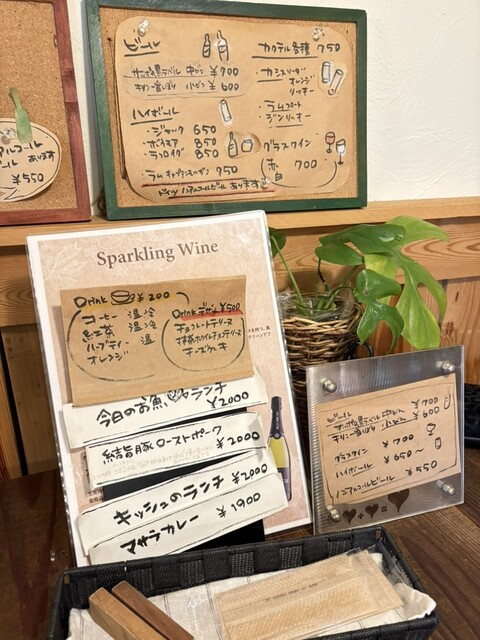 ビール
サッポロ黒ラベル 中びん ¥700
キリン一番しぼり 小ビン ¥600
ハイボール
・ジャック 650
・ボウモア 850
・ラフロイグ 850
・ラムキャプテンモルガン 750
ドイツ ノンアルコールビールあります
カクテル各種 750
・カシスソーダ
オレンジ
リッキー
・ラムコーク
・ジンリッキー
グラスワイン
赤 700
白
アルコール
ール あります
¥550
Sparkling Wine
Drink ¥200
コーヒー 温 冷
紅茶 温 冷
ハーブティー 温
オレンジ
Drink デザート ¥500
チョコレートテリーヌ
抹茶ホワイトチョコテリーヌ
チーズケーキ
今日のお魚ランチ
¥2000
結崎眉豚 ローストポーク
¥2000
キッシュのランチ ¥2000
マサラカレー ¥1600
ビール
サッポロ黒ラベル 中びん ¥700
キリン一番しぼり 小びん ¥600
グラスワイン ¥700
ハイボール ¥650〜
ノンアルコールビール ¥550